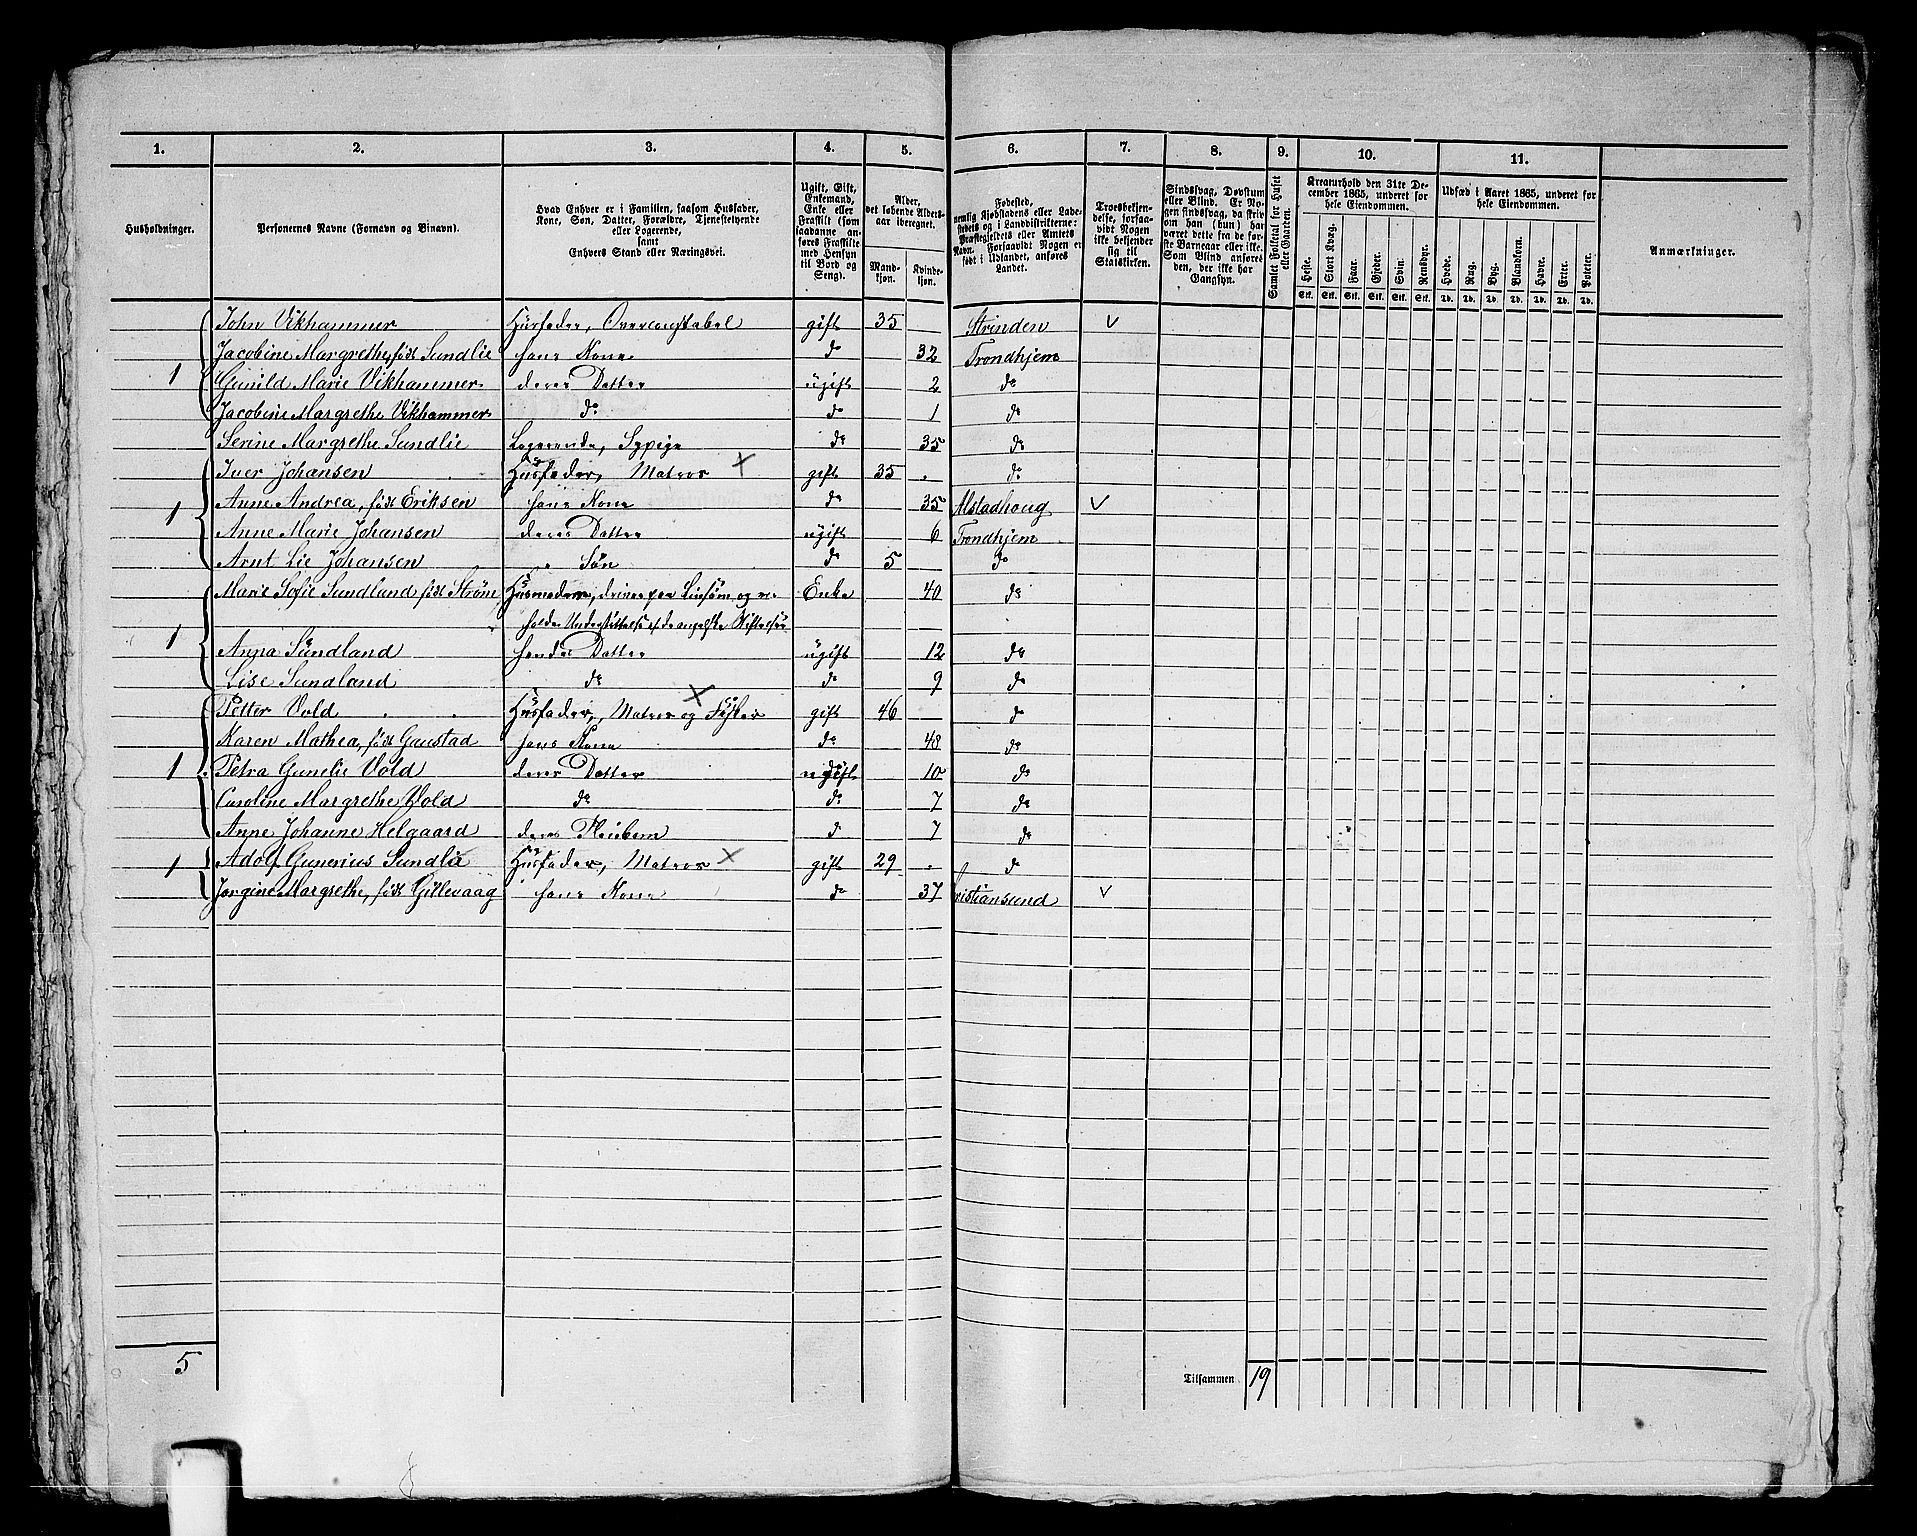 1. 2. 3. 4. 5. 6. 7. 8. 9. 10. 11.
Husholdninger.
Personernes Navne (Fornavn og Binavn).
Hvad Enhver er i Familien, saasom Husfader,
Kone, Søn, Datter, Forældre, Tjenestetyende
eller Logerende,
samt
Enhvers Stand eller Næringsvei.
Ugift, Gift,
Enkemand,
Enke eller
Fraskilt (som
saadanne an-
føres Fraskilte
med Hensyn
til Bord og
Seng).
Alder,
det løbende Alders-
aar iberegnet.
Mand-
kjøn.
Kvinde-
kjøn.
Fødested,
nemlig Kjøbstadens eller Lade-
stedets og i Landdistrikterne:
Præstegjeldets eller Amtets
Navn. Forsaavidt Nogen er
født i Udlandet, anføres
Landet.
Troesbekjen-
delse, forsaa-
vidt Nogen
ikke bekjender
sig til
Statskirken.
Sindssvag, Døvstum
eller Blind. Er No-
gen sindssvag, da skrives
om han (hun) har
været dette fra de før-
ste Barneaar eller ikke.
Som Blind anføres
den, der ikke har
Gangsyn.
Samlet Folketal for Huset
eller Gaarden.
Kreaturhold den 31te De-
cember 1865, underet for
hele Eiendommen.
Heste. Stort Kvæg. Faar. Gjeder. Svin. Rensdyr.
Stk. Stk. Stk. Stk. Stk. Stk.
Udsæd i Aaret 1865, underet for
hele Eiendommen.
Hvede. Rug. Byg. Blandkorn. Havre. Erter. Poteter.
Td. Td. Td. Td. Td. Td. Td.
Anmærkninger.
John Vikhammer Husfader, Overconstabel gift 35 Strinden
Jacobine Margrethe, født Sundlie hans Kone do 32 Trondhjem
1 Gunild Marie Vikhammer deres Datter ugift 2 do
Jacobine Margrethe Vikhammer do do 1 do
Serine Margrethe Sundlie Logerende, Sypige do 35 do
Iver Johansen Husfader, Matros gift 35 do
1 Anne Andrea, født Eriksen hans Kone do 35 Alstadhoug
Anne Marie Johansen deres Datter ugift 6 Trondhjem
Arnt Lie Johansen " Søn do 5 do
Marie Sofie Sundland født Strøm Husmoder, driver paa Linsøm og Enke 40 do
holder Understøttelse af de angelske Stiftelser
1 Anna Sundland hendes Datter ugift 12 do
Lise Sundland do do 9 do
Petter Vold Husfader, Matros og Fisker gift 46 do
Karen Mathea, født Gaustad hans Kone do 48 do
1 Petra Gunelie Vold deres Datter ugift 10 do
Caroline Margrethe Vold do do 7 do
Anne Johanne Helgaard deres Pleiebarn do 7 do
1 Adolf Gunerius Sundlie Husfader, Matros gift 29 do
Jorgine Margrethe, født Gillevaag hans Kone do 37 Christiansund
5 Tilsammen 19